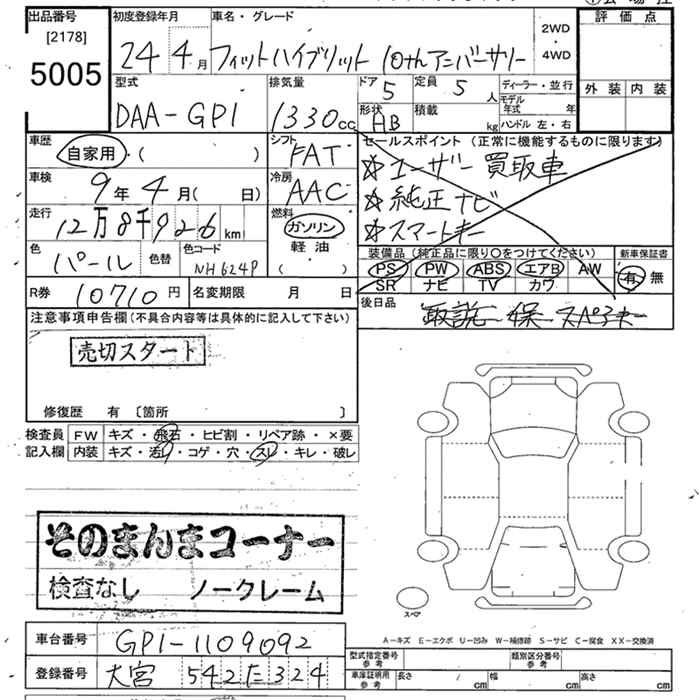 出品番号
[2178]
5005
初度登録年月
24年4月
車名・グレード
フィットハイブリット 10thアニバーサリー
2WD・4WD
評価点
外装 内装
型式
DAA-GP1
排気量
1330cc
ドア 5
定員 5人
形状 HB
積載 kg
ディーラー・並行
モデル年式 年
ハンドル 左・右
車歴
自家用・( )
シフト
FAT
セールスポイント (正常に機能するものに限ります)
☆ユーザー買取車
☆純正ナビ
☆スマートキー
車検
9年4月( 日)
冷房
AAC
走行
12万8千926km
燃料
ガソリン
軽油
( )
色
パール
色替
色コード
NH624P
装備品 (純正品に限り○をつけてください)
PS PW ABS エアB AW
SR ナビ TV カワ
新車保証書
有 無
R券 10710円
名変期限 月 日
後日品
取説 保 スペアキー
注意事項申告欄(不具合内容等は具体的に記入して下さい)
売切スタート
修復歴 有 〔箇所 〕
検査員記入欄
FW キズ・飛石・ヒビ割・リペア跡・×要
内装 キズ・汚れ・コゲ・穴・スレ・キレ・破レ
そのまんまコーナー
検査なし ノークレーム
スペア
A-キズ E-エクボ U-凹み W-補修跡 S-サビ C-腐食 XX-交換済
車台番号
GP1-1109092
登録番号
大宮 542 た 324
型式指定番号 参考
類別区分番号 参考
車庫証明用 参考
長さ cm
幅 cm
高さ cm